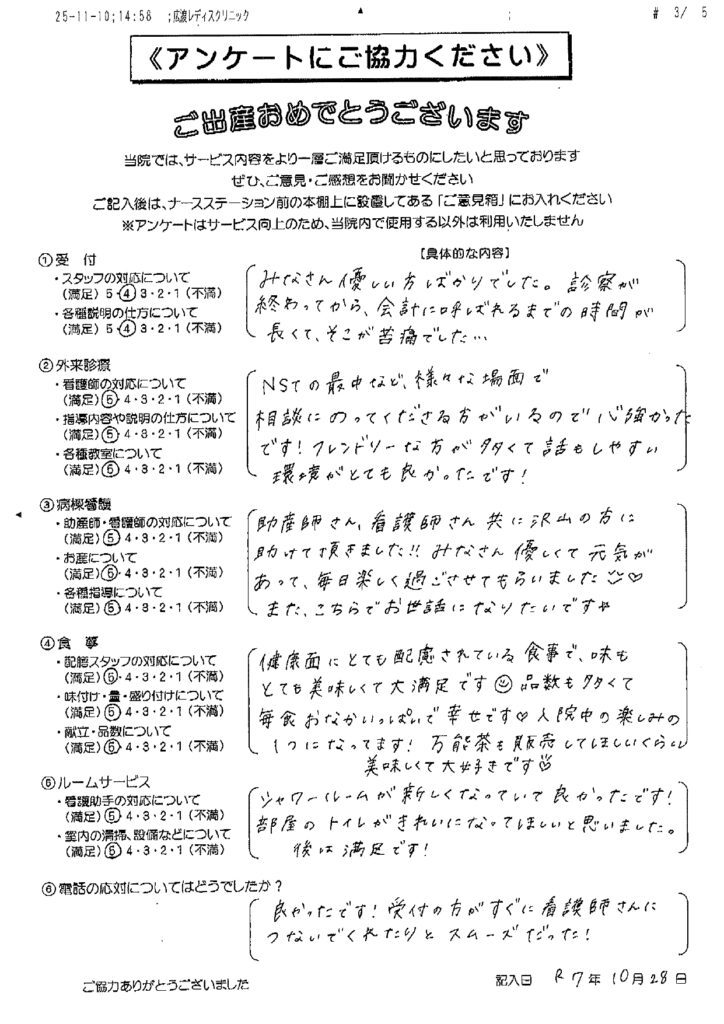 25-11-10;14:58 ;広渡レディスクリニック ; # 3/ 5
《アンケートにご協力ください》
ご出産おめでとうございます
当院では、サービス内容をより一層ご満足頂けるものにしたいと思っております
ぜひ、ご意見・ご感想をお聞かせください
ご記入後は、ナースステーション前の本棚上に設置してある「ご意見箱」にお入れください
※アンケートはサービス向上のため、当院内で使用する以外は利用いたしません
①受 付
【具体的な内容】
・スタッフの対応について
(満足) 5・④ 3・2・1 (不満)
・各種説明の仕方について
(満足) 5・④ 3・2・1 (不満)
みなさん優しい方ばかりでした。診察が
終わってから、会計に呼ばれるまでの時間が
長くて、そこが苦痛でした…
②外来診療
・看護師の対応について
(満足) ⑤・4・3・2・1 (不満)
・指導内容や説明の仕方について
(満足) ⑤・4・3・2・1 (不満)
・各種教室について
(満足) ⑤・4・3・2・1 (不満)
NSTの最中など、様々な場面で
相談にのってくださる方がいるので心強かった
です!フレンドリーな方が多くて話もしやすい
環境がとても良かったです!
③病棟看護
・助産師・看護師の対応について
(満足) ⑤ 4・3・2・1 (不満)
・お産について
(満足) ⑤・4・3・2・1 (不満)
・各種指導について
(満足) ⑤・4・3・2・1 (不満)
助産師さん、看護師さん共に沢山の方に
助けて頂きました!! みなさん優しくて元気が
あって、毎日楽しく過ごさせてもらいました☺♡
また、こちらでお世話になりたいです☆
④食 事
・配膳スタッフの対応について
(満足) ⑤・4・3・2・1 (不満)
・味付け・量・盛り付けについて
(満足) ⑤・4・3・2・1 (不満)
・献立・品数について
(満足) ⑤・4・3・2・1 (不満)
健康面にとても配慮されている食事で、味も
とても美味しくて大満足です☺品数も多くて
毎食おなかいっぱいで幸せです♡入院中の楽しみの
1つになってます!万能茶も販売してほしいくらい
美味しくて大好きです
⑤ルームサービス
・看護助手の対応について
(満足) ⑤ 4・3・2・1 (不満)
・室内の清掃、設備などについて
(満足) ⑤ 4・3・2・1 (不満)
シャワールームが新しくなっていて良かったです!
部屋のトイレがきれいになってほしいと思いました。
後は満足です!
⑥電話の応対についてはどうでしたか?
良かったです!受付の方がすぐに看護師さんに
つないでくれたりとスムーズだった!
ご協力ありがとうございました
記入日 R7年10月28日